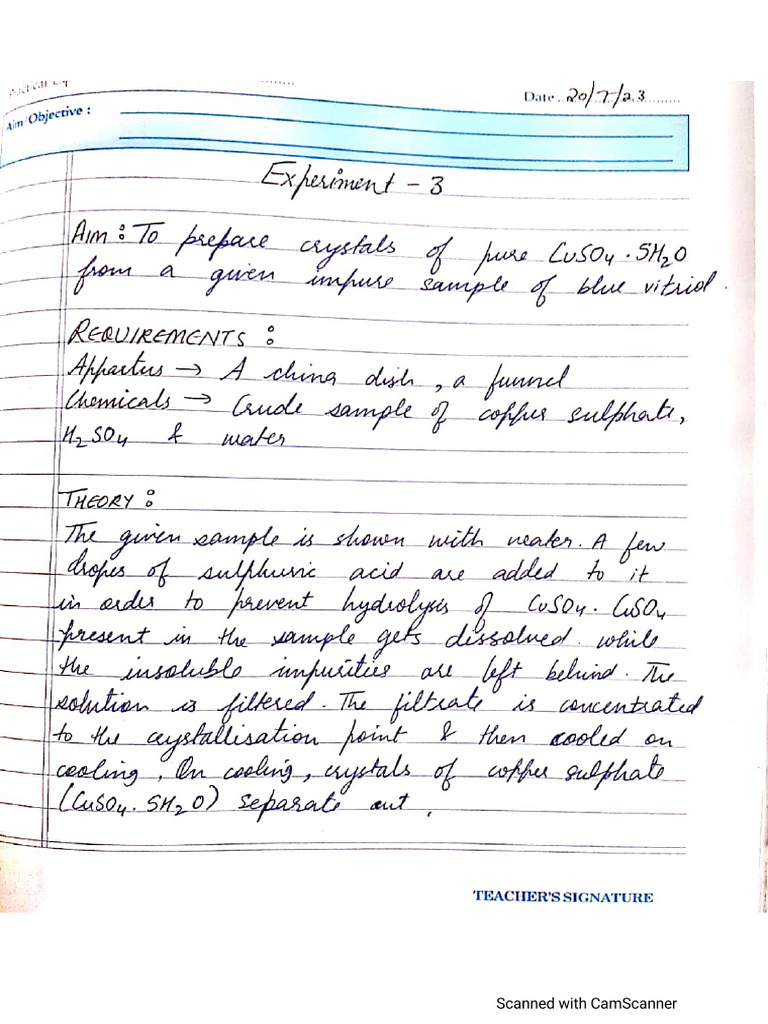 Date 20/7/23
Aim/Objective :
Experiment - 3
Aim : To prepare crystals of pure CuSO4 . 5H2O
from a given impure sample of blue vitriol .
REQUIREMENTS :
Appartus → A china dish , a funnel
Chemicals → Crude sample of copper sulphate ,
H2SO4 & water
THEORY :
The given sample is shown with water . A few
dropes of sulphuric acid are added to it
in order to prevent hydrolysis of CuSO4 . CuSO4
present in the sample gets dissolved while
the insoluble impurities are left behind . The
solution is filtered . The filtrate is concentrated
to the crystallisation point & then cooled on
cooling , On cooling , crystals of copper sulphate
(CuSO4 . 5H2O) separate out .
TEACHER'S SIGNATURE
Scanned with CamScanner